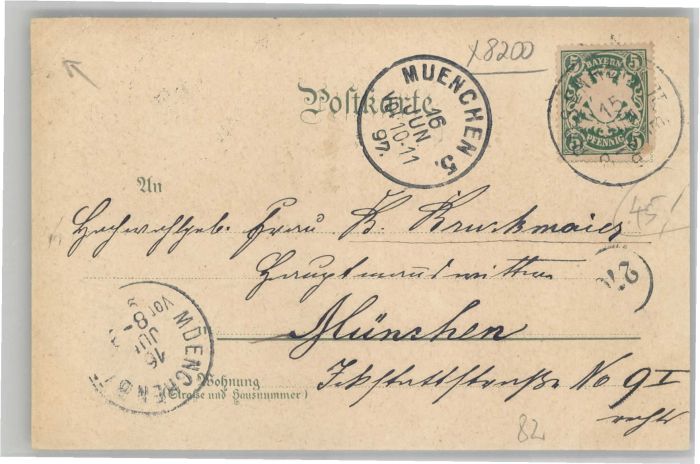 x8200
Postkarte
MUENCHEN 5.
16
JUN
VO 10-11
97.
BAYERN
5 5
5 5
PFENNIG
15
45,
An
Hochwohlgeb. Frau K. Bruckmaier
Hauptmannswittwe
München
Wohnung
(Straße und Hausnummer)
Ickstattstraße No 9 I
rechts
MUENCHEN
VOR 8-9
16
JUN
82